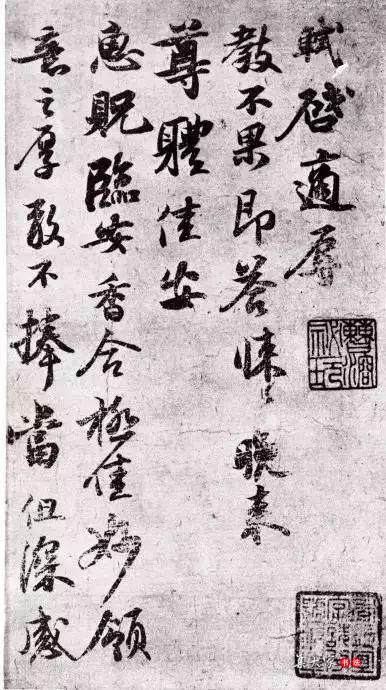 軾啓適辱
教不果即答悚〻晚來
尊體佳安
惠貺臨安香合極佳妙領
意之厚敢不捧當但深感
书法